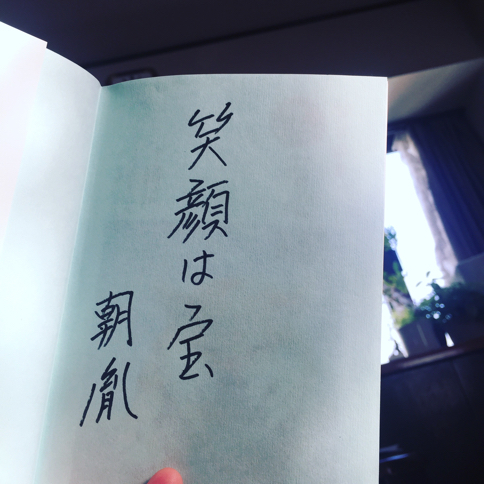 笑顔は宝
朝胤